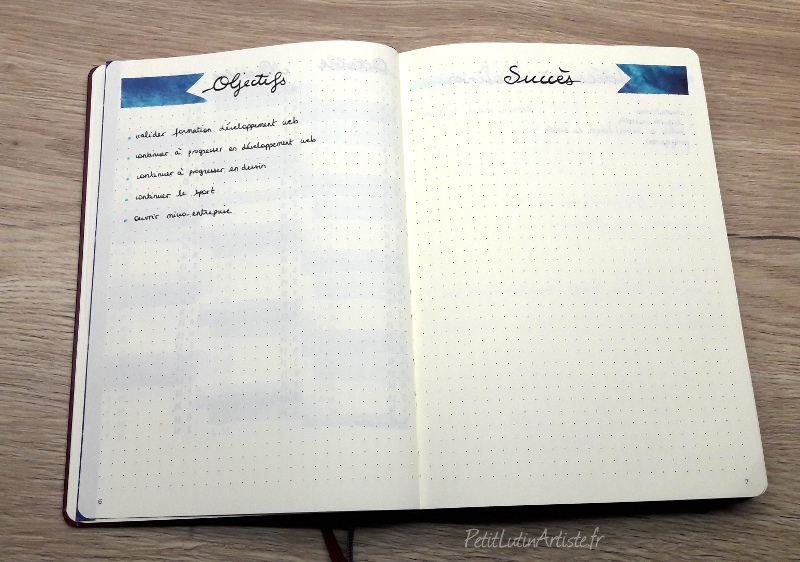 Objectifs
valider formation développement web
continuer à progresser en développement web
continuer à progresser en dessin
continuer le sport
ouvrir micro-entreprise
6
Succès
7
PetitLutinArtiste.fr